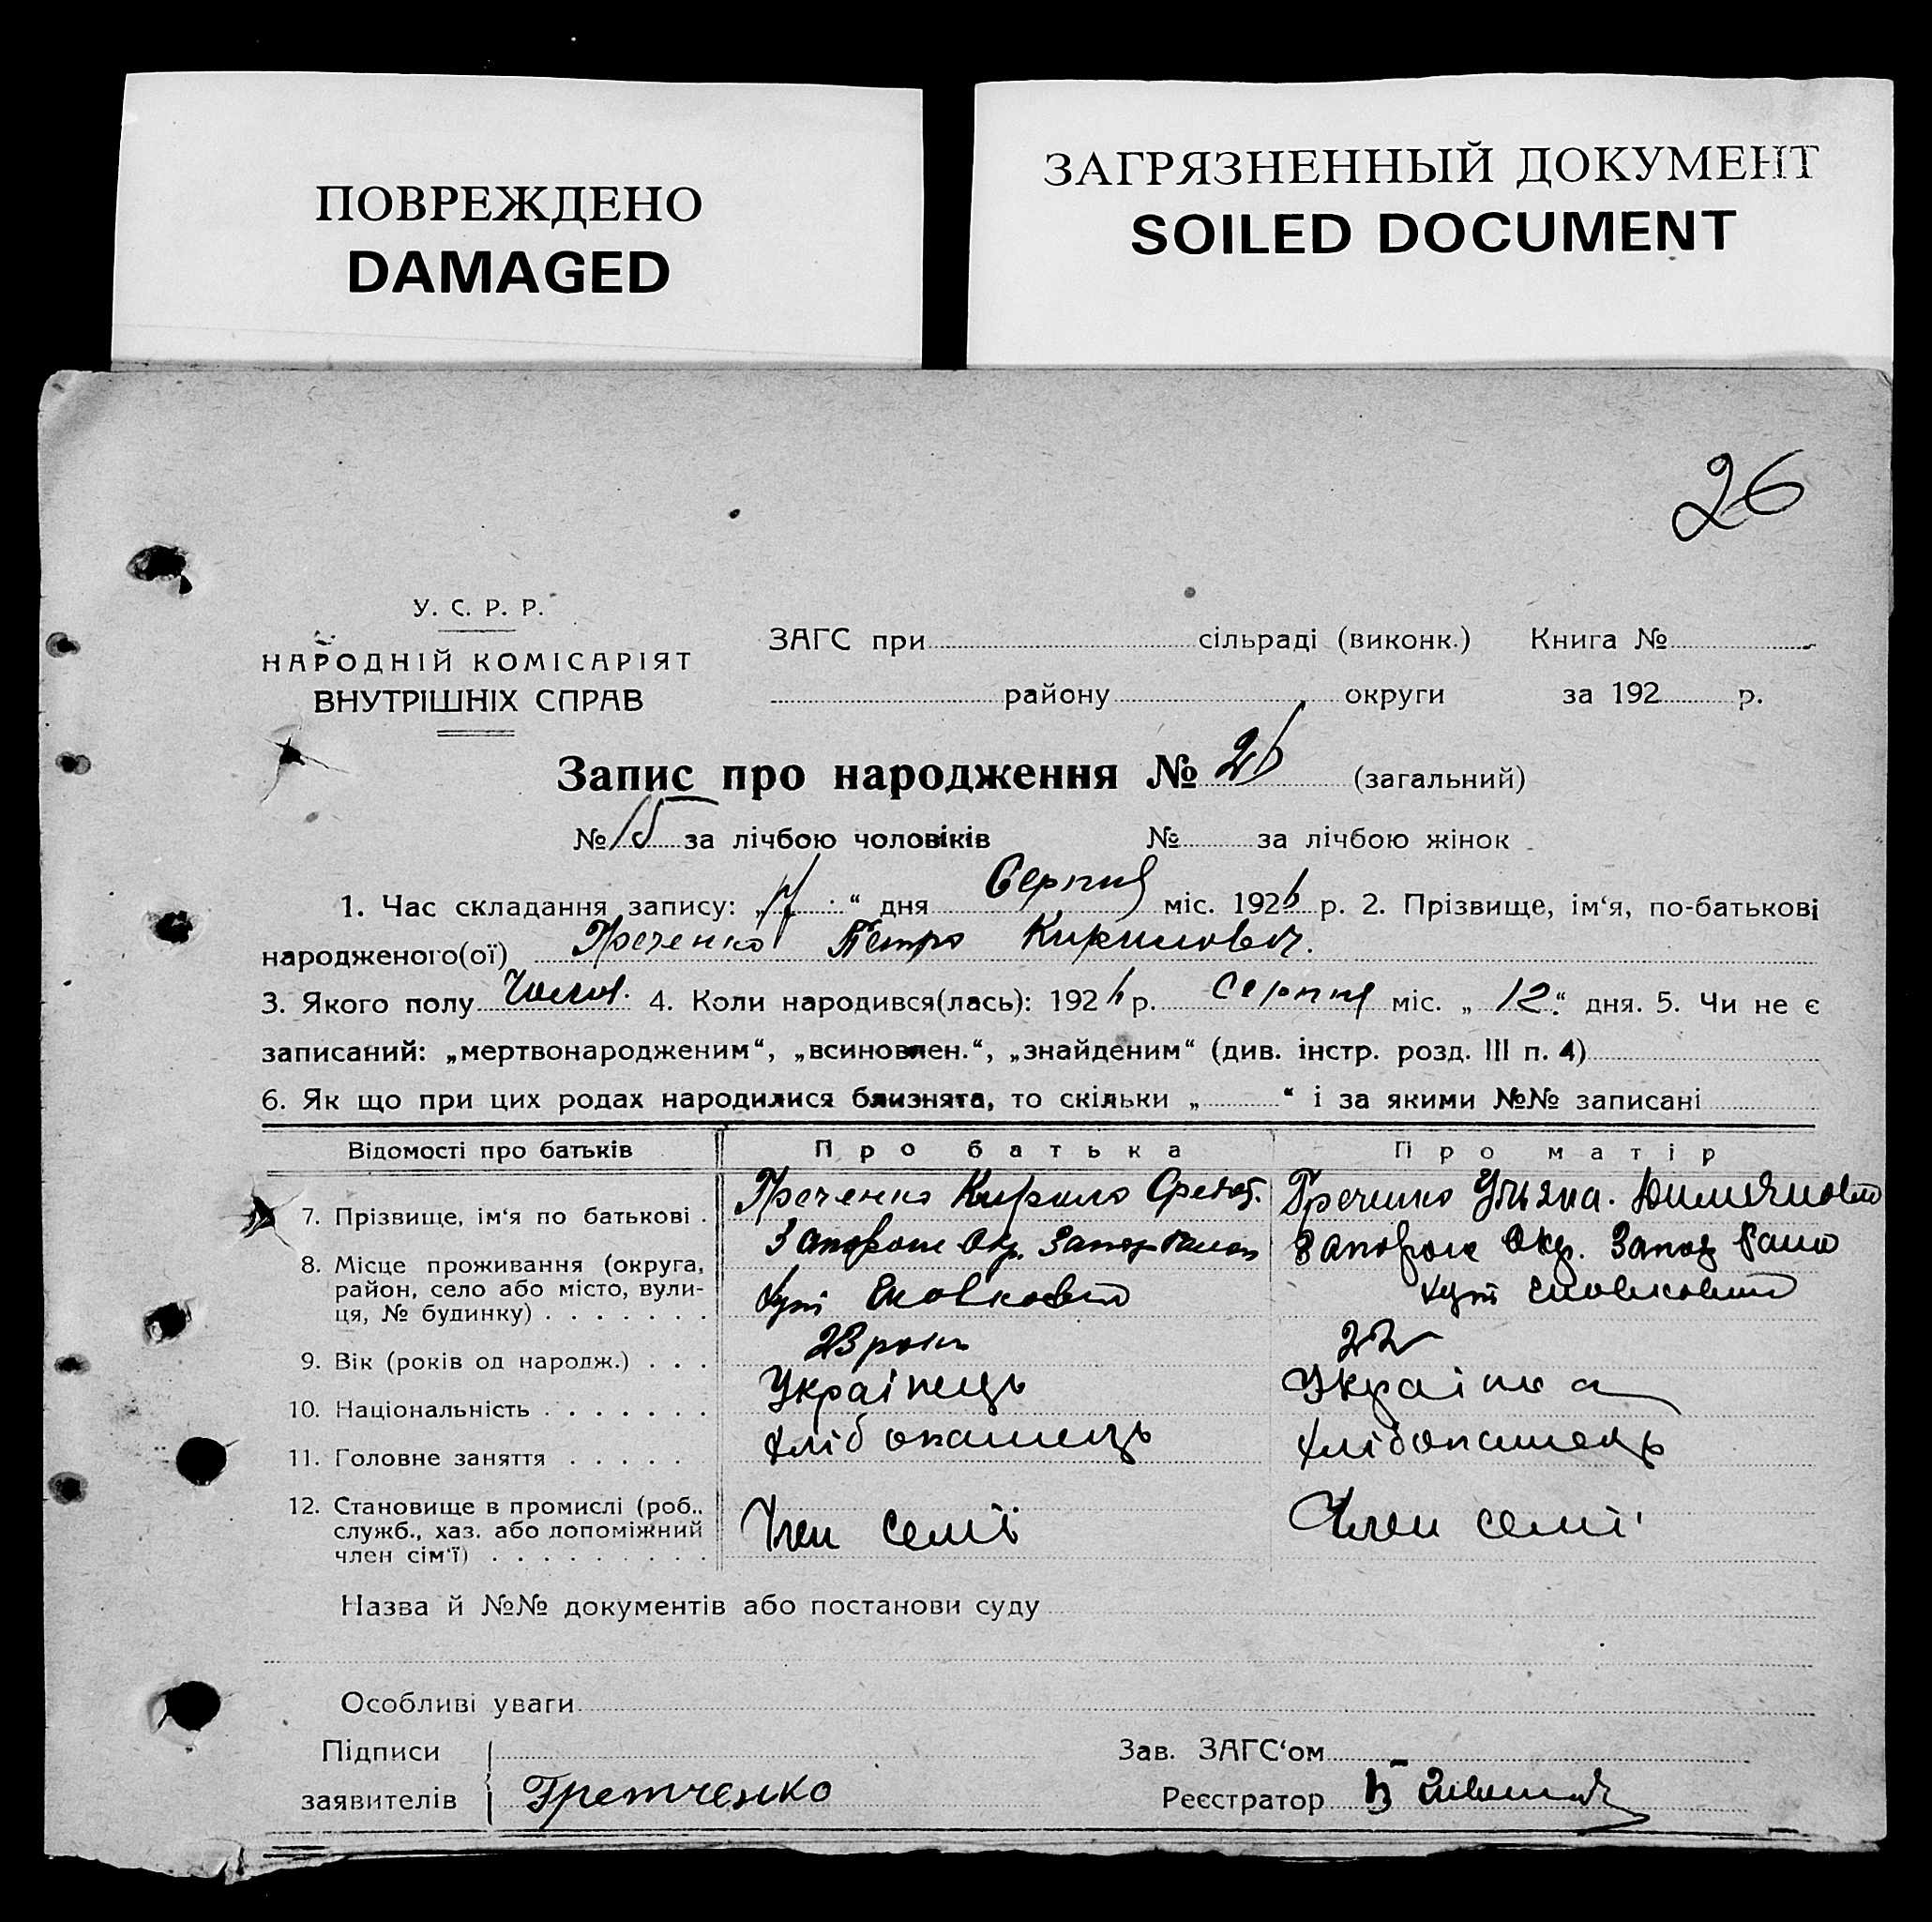 ПОВРЕЖДЕНО
DAMAGED
ЗАГРЯЗНЕННЫЙ ДОКУМЕНТ
SOILED DOCUMENT
26
У. С. Р. Р.
НАРОДНІЙ КОМІСАРІЯТ
ВНУТРІШНІХ СПРАВ
ЗАГС при сільраді (виконк.) Книга №
району округи за 192 р.
Запис про народження № 26 (загальний)
№ 15 за лічбою чоловіків № за лічбою жінок
1. Час складання запису: „ “ дня Серпня міс. 1926 р. 2. Прізвище, ім‘я, по-батькові
народженого(ої) Греченко Петро Кирилович.
3. Якого полу Чолов. 4. Коли народився(лась): 1926 р. Серпня міс. „12“ дня. 5. Чи не є
записаний: „мертвонародженим“, „всиновлен.“, „знайденим“ (див. інстр. розд. III п. 4)
6. Як що при цих родах народилися близнята, то скільки „ “ і за якими №№ записані
Відомості про батьків Про батька Про матір
7. Прізвище, ім‘я по батькові . Греченко Кирило Греченко Уляна.
8. Місце проживання (округа, Запорож Окр. Запор Район Запорож Окр. Запор Район
район, село або місто, вули-
ця, № будинку) . . . . . . . Хут Хут
9. Вік (років од народж.) . . . 23 роки 22
10. Національність . . . . . . . Українець Українка
11. Головне заняття . . . . . Хлібопашець Хлібопашець
12. Становище в промислі (роб.,
служб., хаз. або допоміжний Член семї Член семї
член сім‘ї) . . . . . . . . .
Назва й №№ документів або постанови суду
Особливі уваги
Підписи Зав. ЗАГС‘ом
заявителів Гретченко Реєстратор